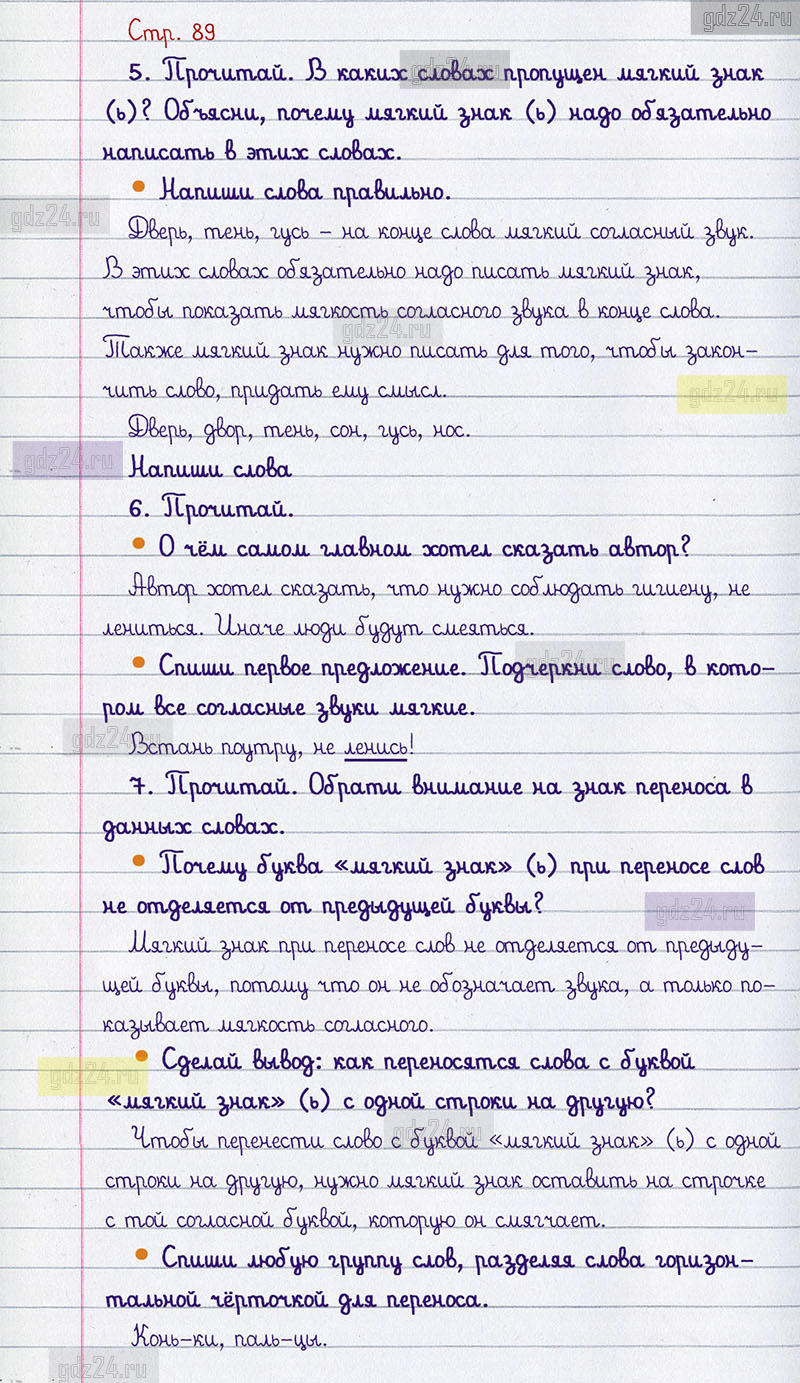 gdz24.ru
Стр. 89
gdz24.ru
5. Прочитай. В каких словах пропущен мягкий знак
(ь)? Объясни, почему мягкий знак (ь) надо обязательно
написать в этих словах.
• Напиши слова правильно.
gdz24.ru
Дверь, тень, гусь – на конце слова мягкий согласный звук.
В этих словах обязательно надо писать мягкий знак,
чтобы показать мягкость согласного звука в конце слова.
gdz24.ru
Также мягкий знак нужно писать для того, чтобы закон-
чить слово, придать ему смысл.
gdz24.ru
Дверь, двор, тень, сон, гусь, нос.
gdz24.ru
Напиши слова
6. Прочитай.
• О чём самом главном хотел сказать автор?
Автор хотел сказать, что нужно соблюдать гигиену, не
лениться. Иначе люди будут смеяться.
gdz24.ru
• Спиши первое предложение. Подчеркни слово, в кото-
ром все согласные звуки мягкие.
gdz24.ru
Встань поутру, не ленись!
7. Прочитай. Обрати внимание на знак переноса в
данных словах.
• Почему буква «мягкий знак» (ь) при переносе слов
не отделяется от предыдущей буквы?
gdz24.ru
Мягкий знак при переносе слов не отделяется от предыду-
щей буквы, потому что он не обозначает звука, а только по-
казывает мягкость согласного.
• Сделай вывод: как переносятся слова с буквой
gdz24.ru
«мягкий знак» (ь) с одной строки на другую?
gdz24.ru
Чтобы перенести слово с буквой «мягкий знак» (ь) с одной
строки на другую, нужно мягкий знак оставить на строчке
с той согласной буквой, которую он смягчает.
• Спиши любую группу слов, разделяя слова горизон-
тальной чёрточкой для переноса.
Конь-ки, паль-цы.
gdz24.ru